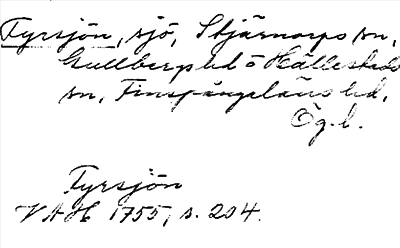 Fyrsjön, sjö, Stjärnorps sn,
Gullbergs hd o Hällestads
sn, Finspångaläns hd,
Ög. l.
Fyrsjön
VAH 1755, s. 204.